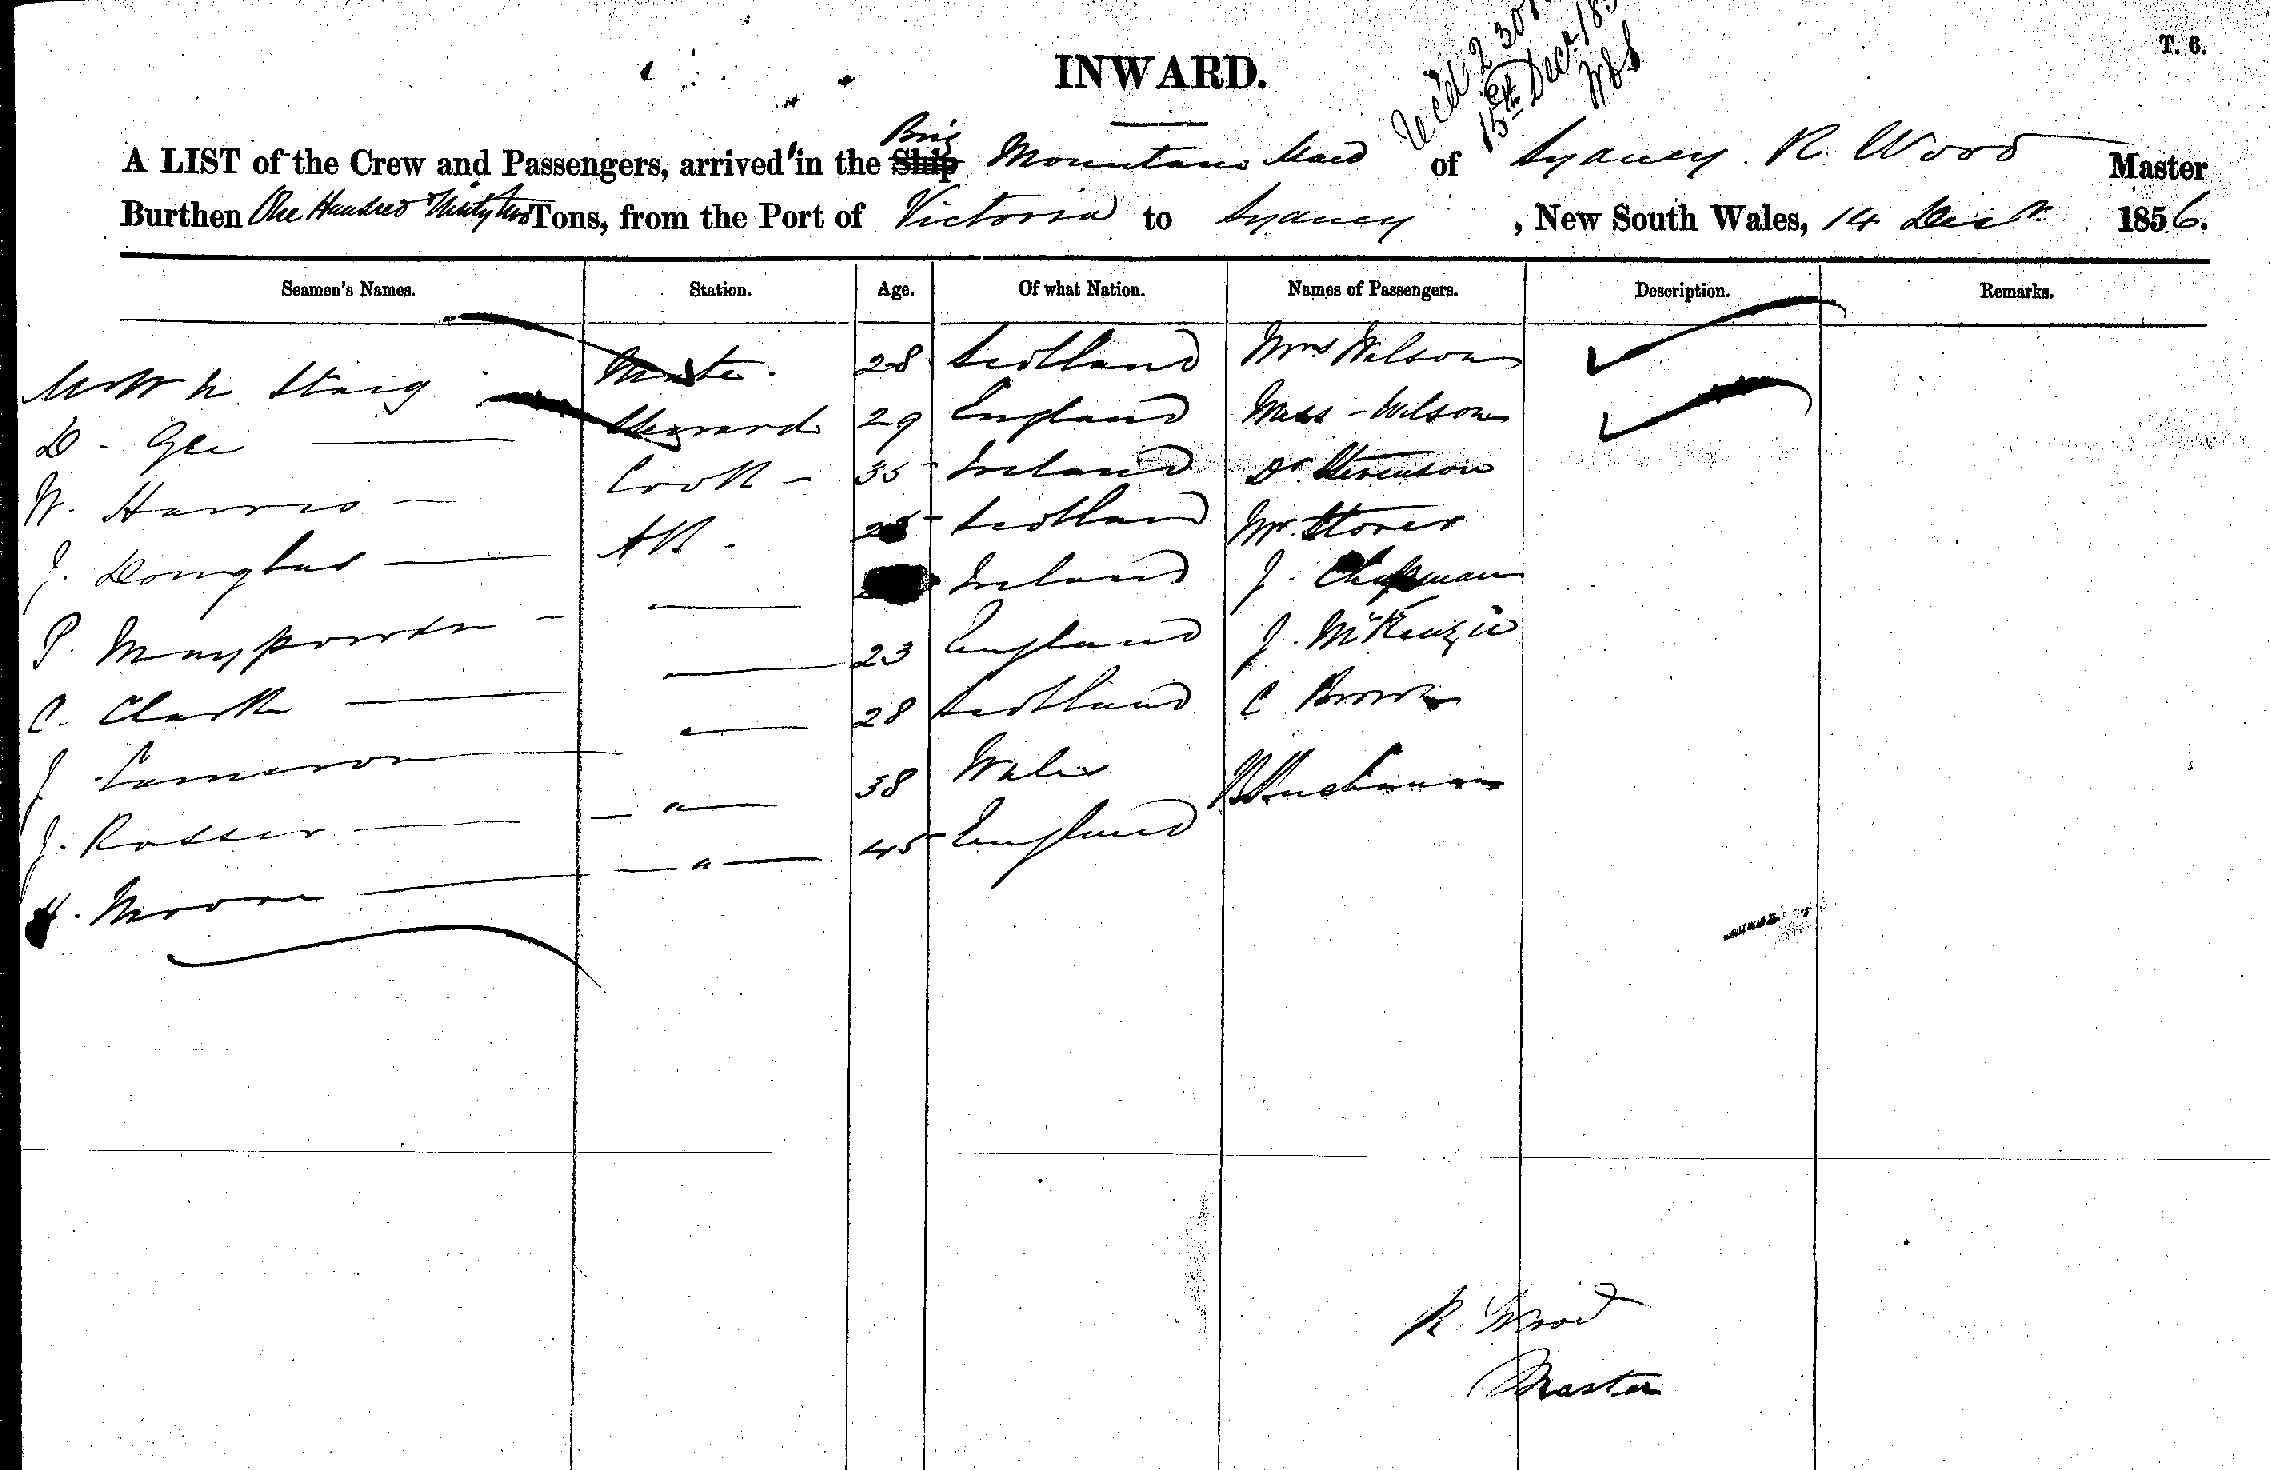 T. 6.
INWARD.
15th Decr 185
Brig
A LIST of the Crew and Passengers, arrived in the Ship Mountain Maid of Sydney R. Wood Master
Burthen One Hundred Thirty two Tons, from the Port of Victoria to Sydney, New South Wales, 14 Decr 1856.
Seamen's Names. Station. Age. Of what Nation. Names of Passengers. Description. Remarks.
Staig Mate. 28 Scotland Mrs Wilson
D. Gee Steward 29 England Miss Wilson
W. Harris Cook 35 Ireland Dr Stevenson
J. Douglas AB. Scotland Mr. Storer
P. Ireland J. Chapman
C. Clark 23 England J. McKenzie
J Cameron 28 Scotland C Brown
J. Rosser " 38 Wales Buchanan
H. Moore " 45 England
R. Wood
Master